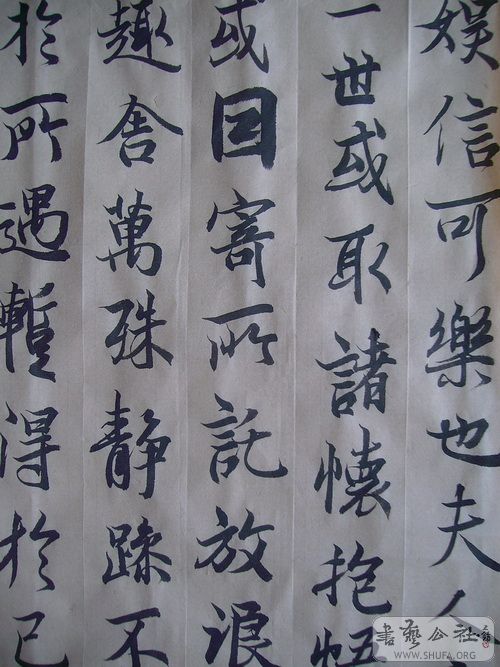 娛信可樂也夫人
一世或取諸懷抱悟
或因寄所託放浪
趣舍萬殊靜躁不
於所遇暫得於己
書藝公社
WWW.SHUFA.ORG